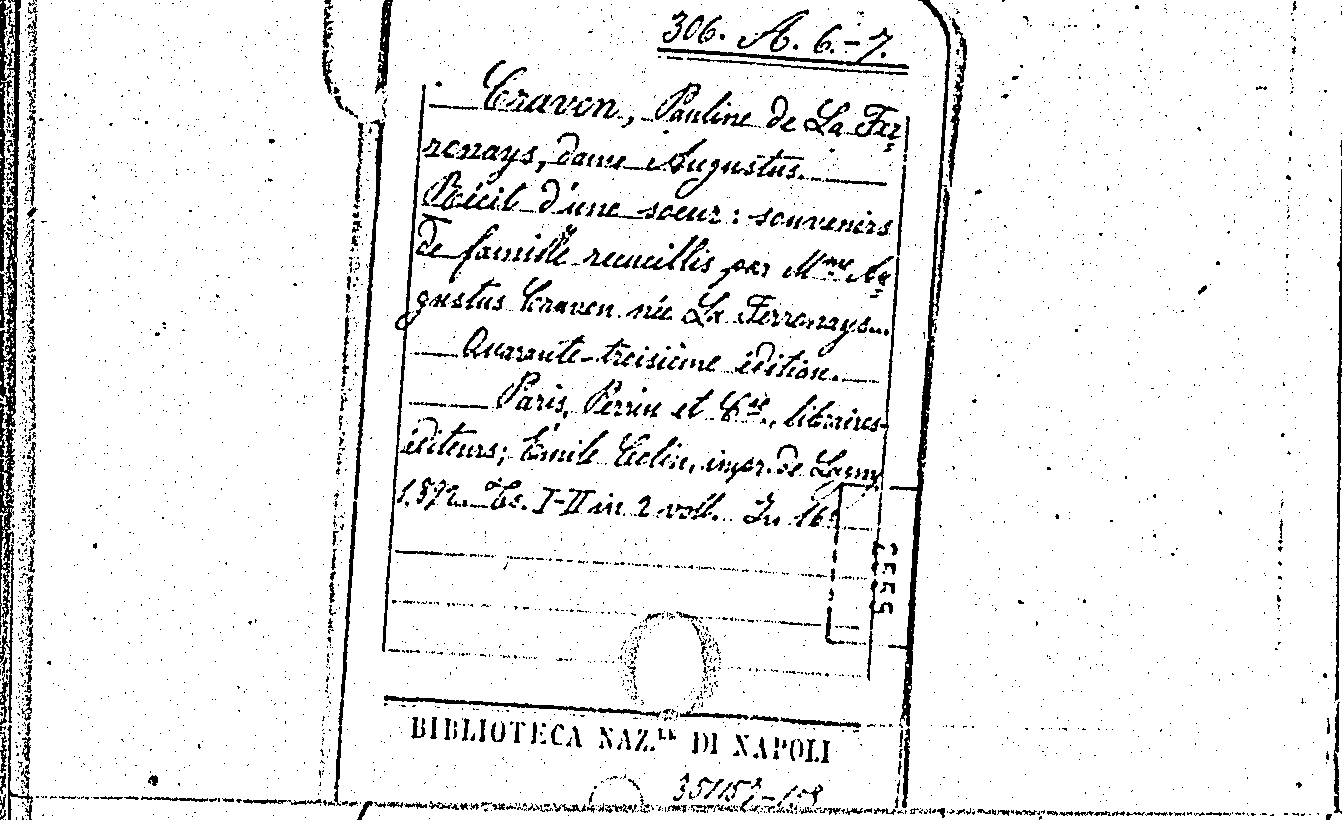 306. A. 6.-7.
Craven, Pauline de La Fer
ronays, dame Augustus.
Récit d'une soeur : souvenirs
de famille recueillis par Mme Au
gustus Craven née La Ferronays...
Quarante-troisième édition.
Paris, Perrin et Cie., libraires-
éditeurs; Emile Colin, impr. de Lagny
1892. Ts. I-II in 2 voll. In 16º
BIBLIOTECA NAZ.LE DI NAPOLI